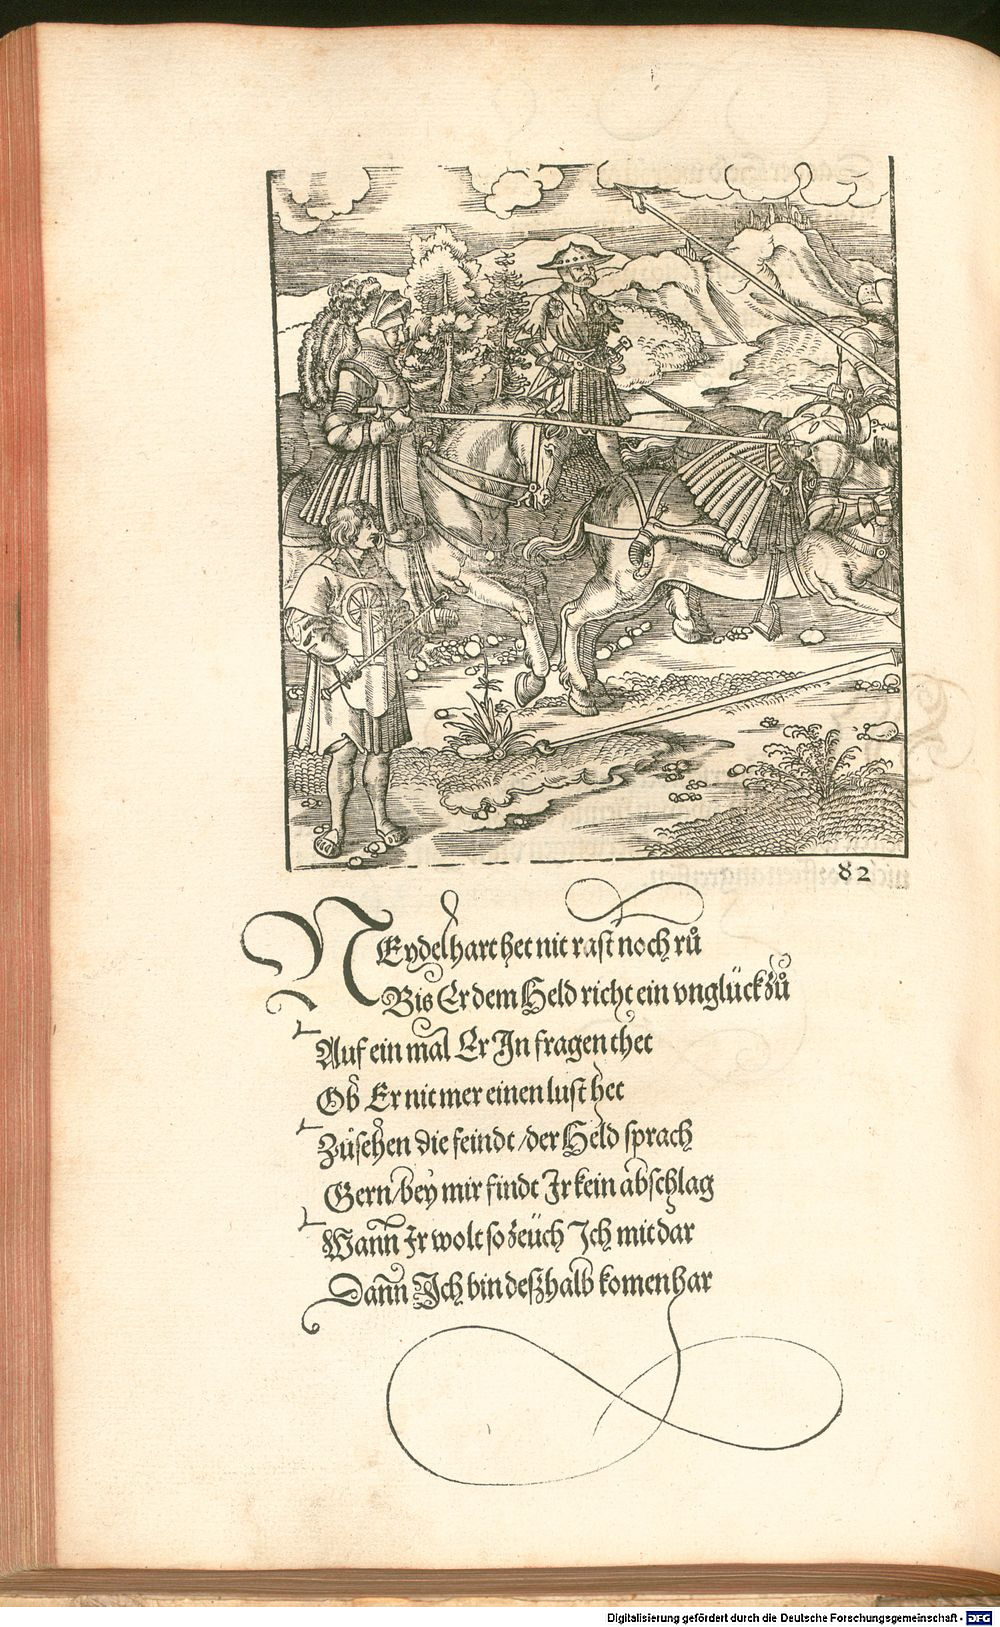 82
NEydelhart het nit rast noch rů
Bis Er dem Held richt ein vnglück zů
Auf ein mal Er In fragen thet
Ob Er nit mer einen lust het
Zůsehen die feindt / der Held sprach
Gern / bey mir findt Ir kein abschlag
Wann Ir wolt so zeüch Ich mit dar
Dann Ich bin deszhalb komen har
Digitalisierung gefördert durch die Deutsche Forschungsgemeinschaft - DFG